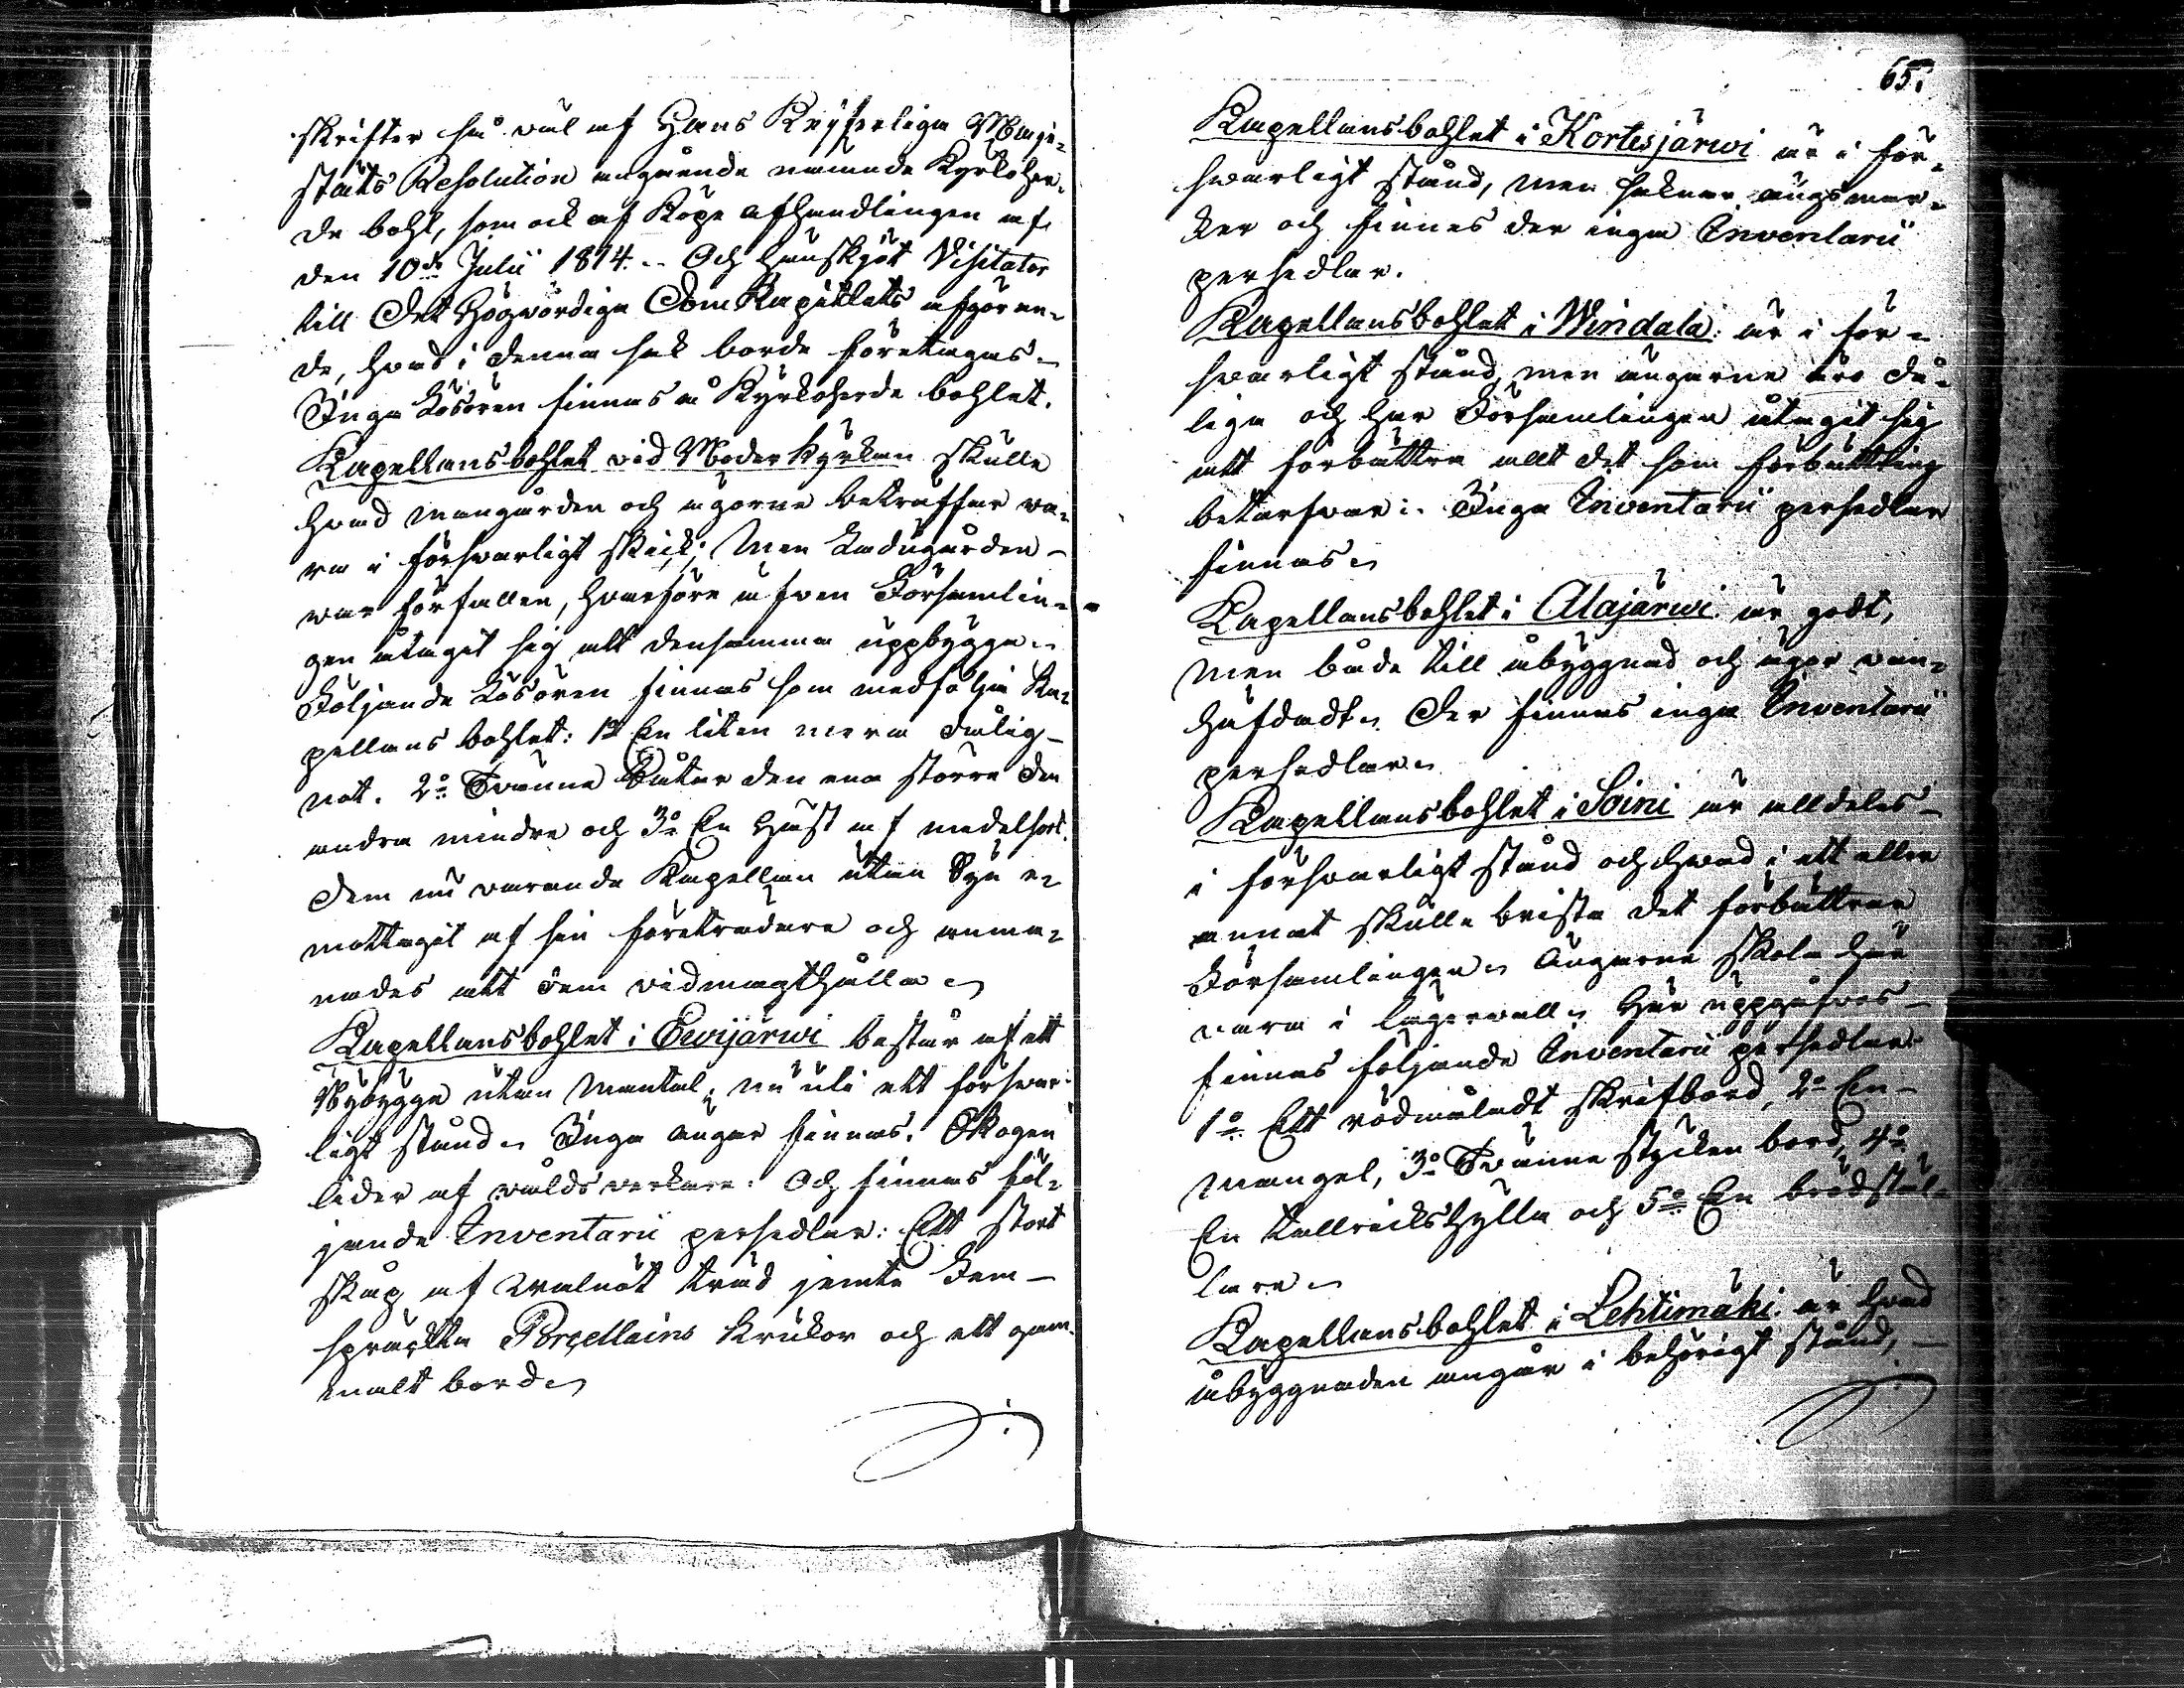 skrifter så väl af Hans Kejserliga Maje-
stäts Resolution angående nämnde Kyrkoher-
de bohl, som ock af Köpe afhandlingen af
den 10de Julii 1814. Och hänsköt Visitator
till Det Högvördiga DomKapitlets afgöran-
de, hvad i denna sak borde företagas.
Inga Lösören finnas å Kyrkoherde bohlet.
Kapellansbohlet vid Moderkyrkan skulle
hvad mangården och ägorne beträffar va-
ra i försvarligt skick; Men Ladugården
var förfallen, hvarföre äfven Församlin-
gen åtagit sig att densamma uppbygga.
Följande Lösören finnas som medfölja Ka-
pellans bohlet: 1o En liten mera dålig
not. 2o Tvänne Båtar den ena större den
andra mindre och 3o En Häst af medelsort.
Dem nu varande Kapellan utan Syn e-
mottagit af sin företrädare och anma-
nades att dem vidmagthålla.
Kapellansbohlet i Ewijärwi består af ett
Nybygge utan Mantal; nu uti ett försvar-
ligt stånd. Inga ängar finnas. Skogen
lider af våldsverkare. Och finnas föl-
jande Inventarii persedlar: Ett stort
skåp af valnöt träd jemte Fem
spräckta Porcellains krukor och ett gam-
malt bord.
65.
Kapellansbohlet i Kortesjärwi är i för-
svarligt stånd, men saknar ängsmar-
ker och finnes der inga Inventarii
persedlar.
Kapellansbohlet i Windala är i för-
svarligt stånd men ängarne äro då-
liga och har Församlingen åtagit sig
att förbättra allt det som förbättring
betarfvar. Inga Inventarii persedlar
finnas.
Kapellansbohlet i Alajärwi är godt,
men både till åbyggnad och ägor van-
häfdadt. Der finnas inga Inventarii
persedlar.
Kapellansbohlet i Soini är alldeles
i försvarligt stånd och hvad i ett eller
annat skulle brista det förbättrar
Församlingen. Ängarne skola här
vara i lägervall. Här uppgåfvos
finnas följande Inventarii persedlar
1o Ett rödmåladt skrifbord, 2o En
mangel, 3o Tvänne stycken bord, 4o
En tallrickshylla och 5o En brödstäl-
lare.
Kapellansbohlet i Lehtimäki är hvad
åbyggnaden angår i behörigt stånd,